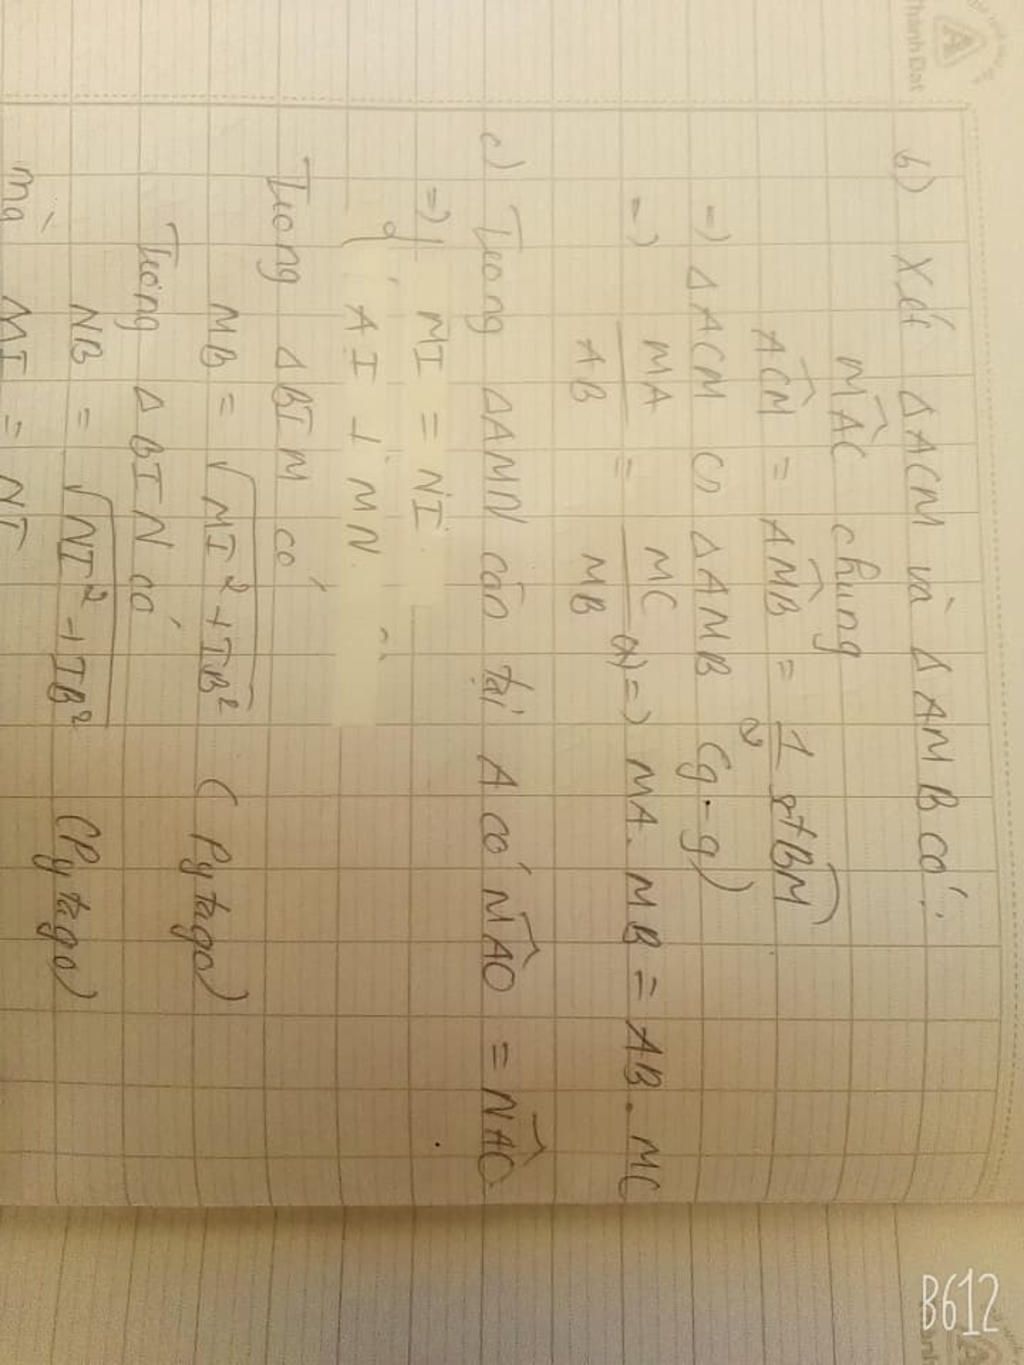 b) Xét ΔACM và ΔAMB có:
MAC chung
ACM = AMB = 1/2 sđ BM
=) ΔACM ᔕ ΔAMB (g-g)
=) MA/AB = MC/MB (*) =) MA.MB = AB.MC
c) Trong ΔAMN cân tại A có MAO = NAO
=) MI = NI
AI ⊥ MN
Trong ΔBIM có
MB = √MI²+IB² (Pytago)
Trong ΔBIN có
NB = √NI²+IB² (Pytago)
mà MI = NI
B612
Thành Đạt
A